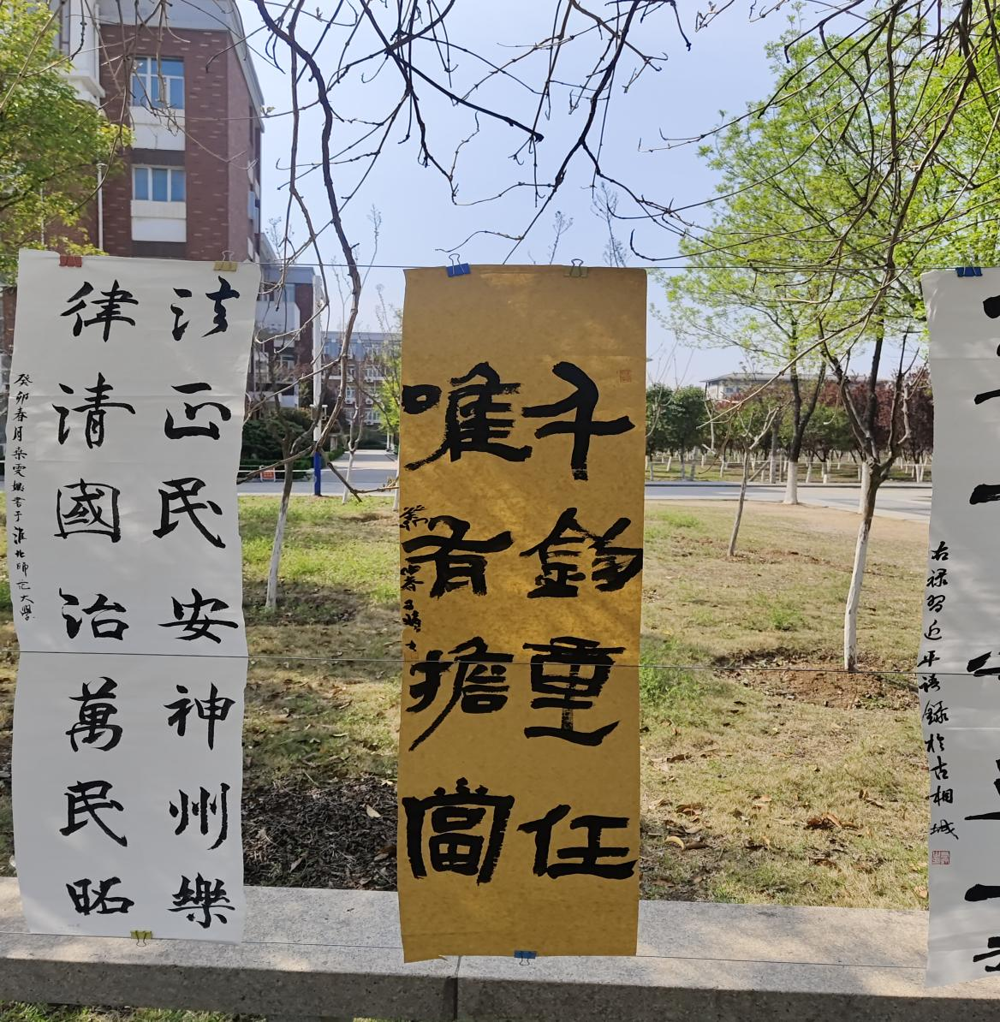 法正民安神州樂
律清國治萬民昭
癸卯春月 雯 書于淮北師范大學
千鈞重任
唯有擔當
右録習近平語録於古相城